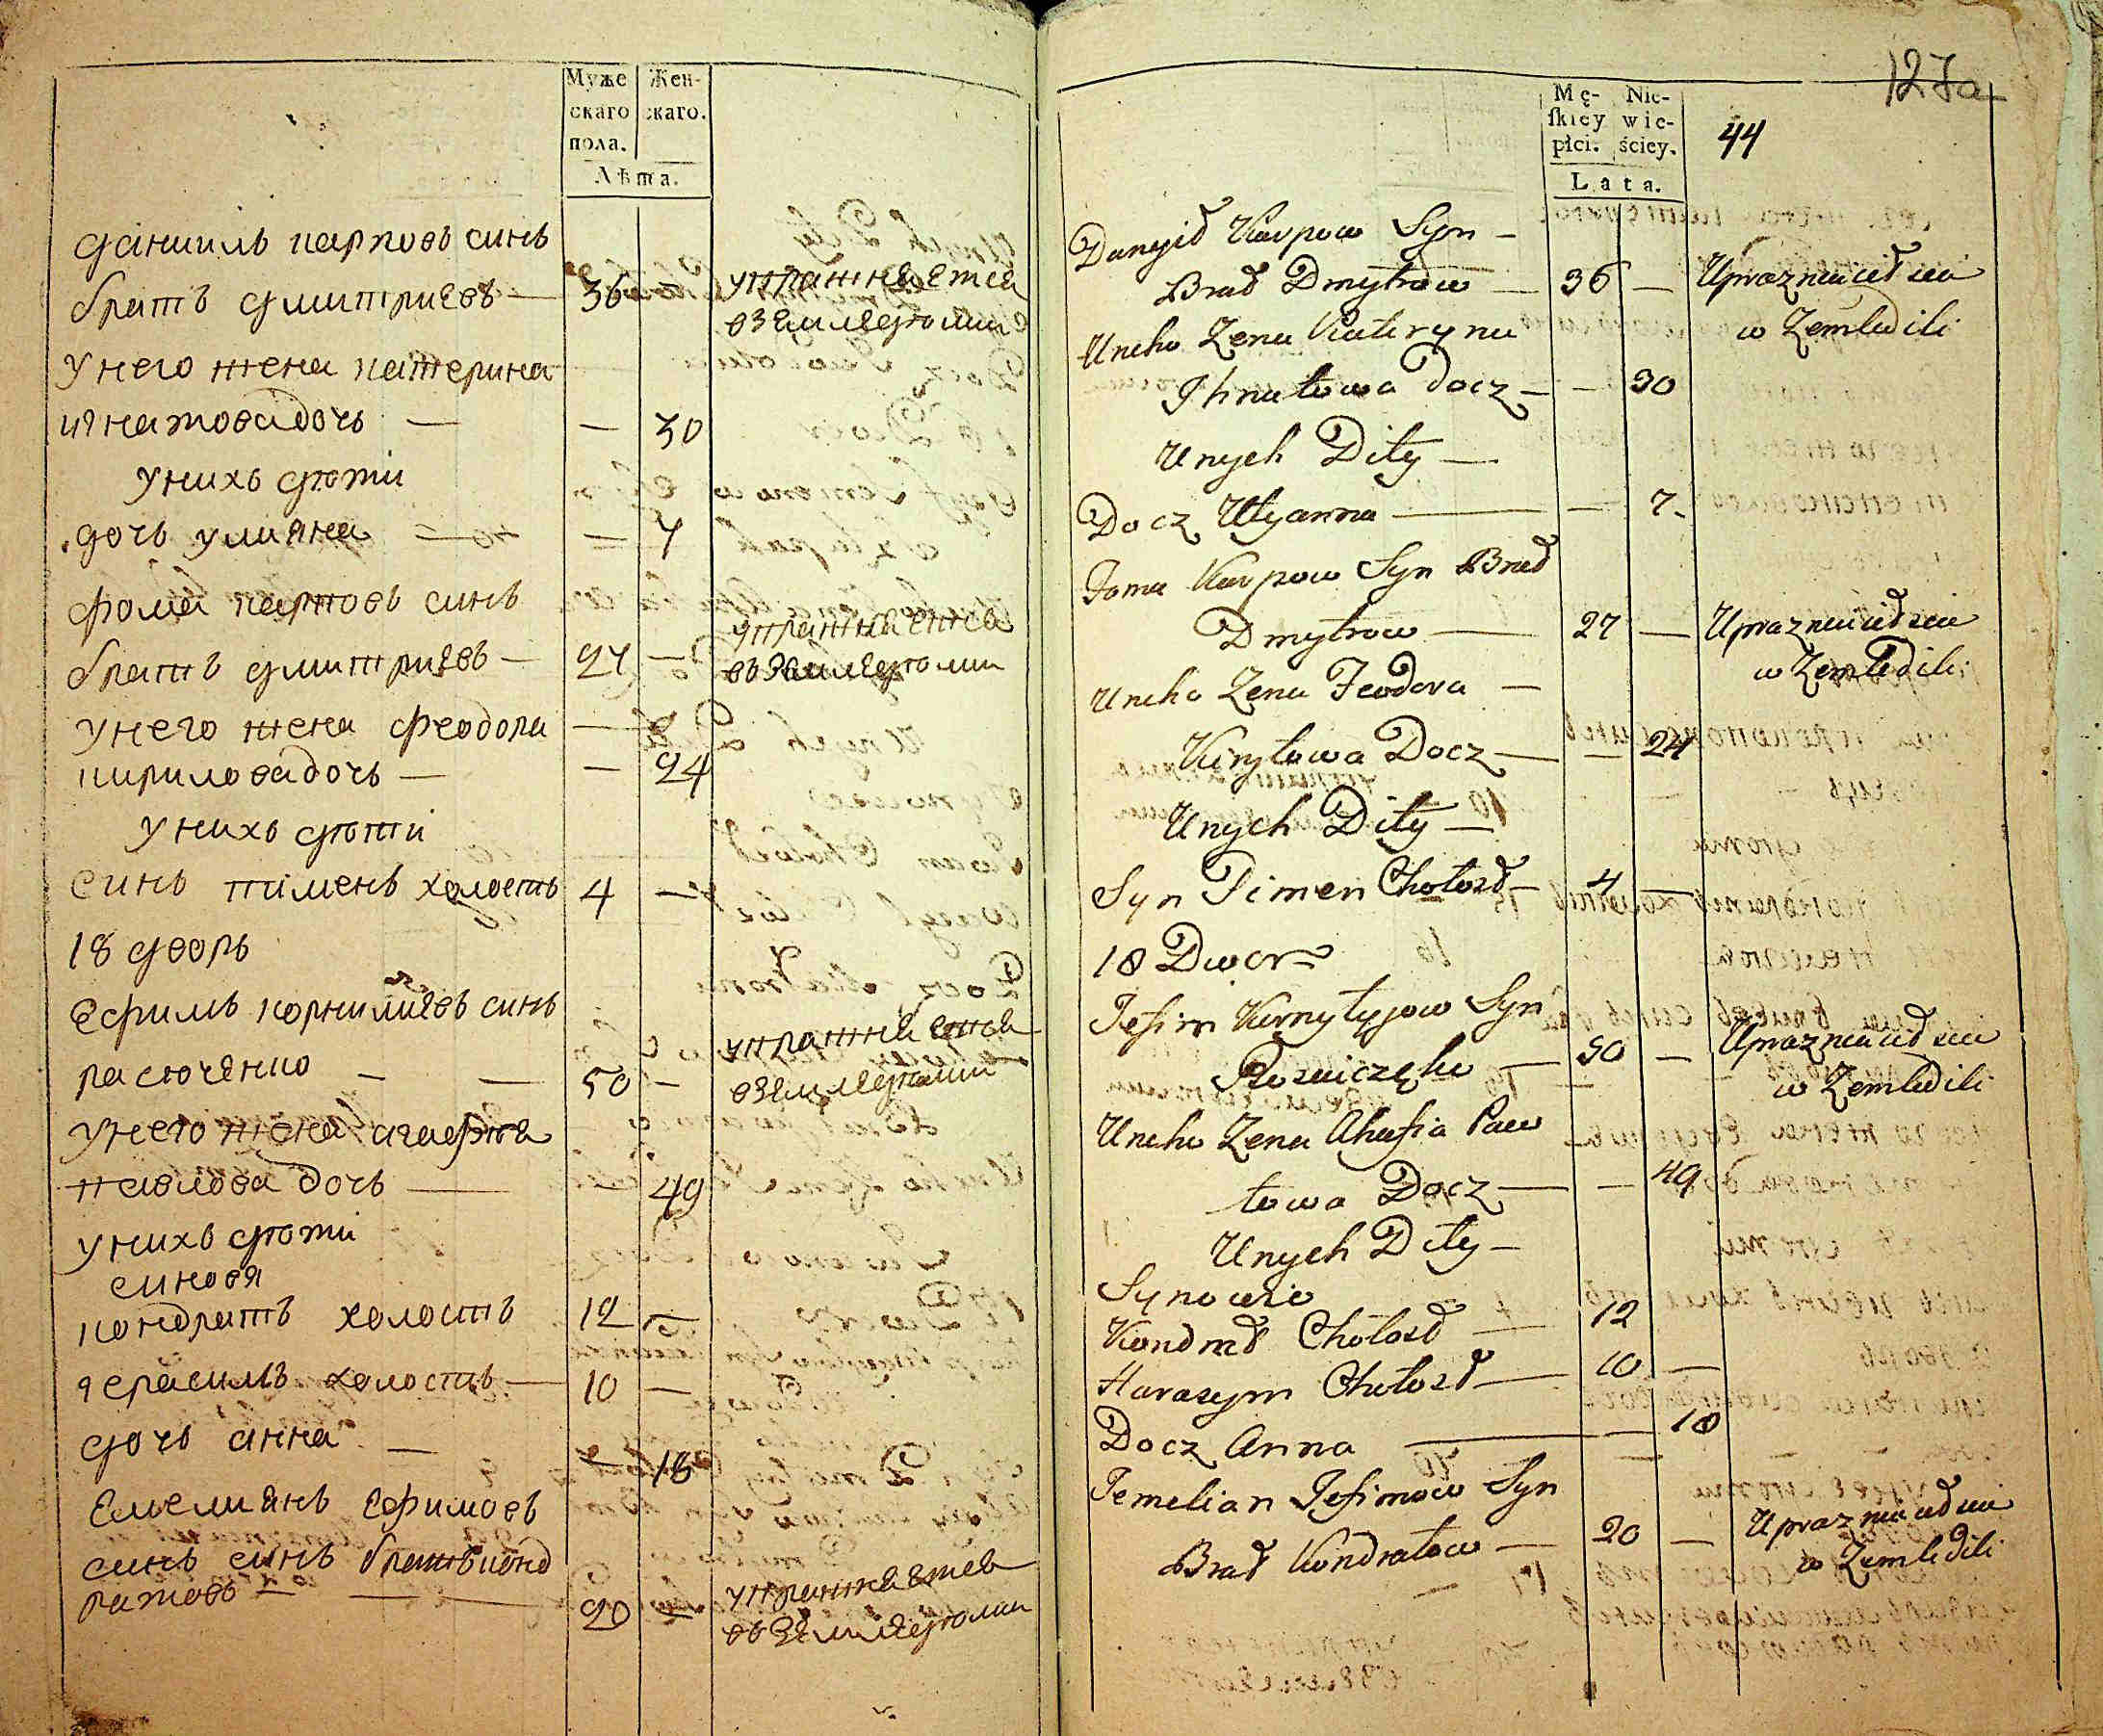 Муже
скаго
пола.
Жен-
скаго.
Лѣта.
даниилъ карповъ синъ
братъ дмитриевъ — 36 — упражняется
в земледѣлии
у него жена катерина
игнатова дочь — — 30
у нихъ дѣти
дочь улияна — — 7
фома карповъ синъ
братъ дмитриевъ — 27 — упражняется
въ земледѣлии
у него жена феодора —
кирилова дочь — — 24
у нихъ дѣти
синъ пименъ холостъ 4 —
18 дворъ
ефимъ корнилиевъ синъ
расюченко — — 50 — упражняется
в земледѣлии
у него жена агафия
павлова дочь — — 49
у нихъ дѣти
синовя
кондратъ холостъ 12 —
герасимъ холостъ — 10 —
дочь анна — — 18
емелиянъ ефимовъ
синъ синъ братъ конд
ратовъ — — 20 — упражняется
въ земледѣлии
127a
Mę-
ſkiey
płci.
Nie-
wie-
ściey.
44
Lata.
Danyił Karpow Syn —
Brat Dmytrow — 36 — Uprazniaietsia
w Zemledili
Uneho Zena Kateryna
Ihnatowa Docz — — 30
Unych Dity —
Docz Ulyanna — — 7
Foma Karpow Syn Brat
Dmytrow — 27 — Uprazniaietsia
w Zemledili
Uneho Zena Feodora —
Kiryłowa Docz — — 24
Unych Dity —
Syn Pimen Chołost — 4 —
18 Dwor
Jefim Kornyłyjow Syn
— 50 — Uprazniaietsia
w Zemledili
Uneho Zena Ahafia Paw
łowa Docz — — 49
Unych Dity —
Synowie
Kondrat Chołost — 12
Harasym Chołost — 10 —
Docz Anna — — 18
Jemelian Jefimow Syn
Brat Kondratow — 20 — Uprazniaietsia
w Zemledili